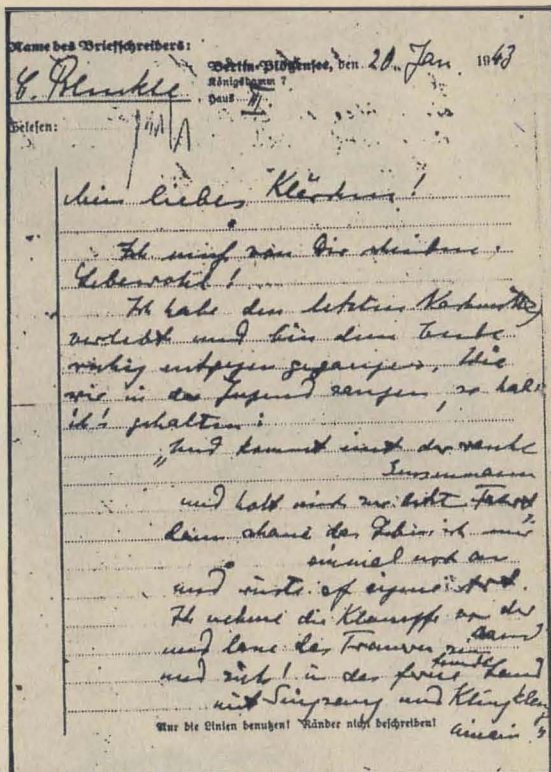 Name des Briefschreibers:
Berlin-Plötzensee, den 20. Jan. 1943
Königsdamm 7
Haus III
C. Blenkle
Gelesen:
Mein liebes Klärchen!
Ich muß von Dir scheiden.
Lebewohl!
Ich habe den letzten Nachmittag
verlebt und bin dem Ende
ruhig entgegen gegangen. Wie
wir in der Jugend sangen, so hab
ich's gehalten:
„Und kommt einst der
Sensenmann
und holt mich zur letzt Fahrt,
dann schaue das Leben ich mir
einmal noch an
und auf eigene Art.
Ich nehme die Klampfe von der
Wand
und lasse das Trauern sein
und zieh! in das fremde Land
mit Singsang und Klingklang
hinein."
Nur die Linien benutzen! Ränder nicht beschreiben!